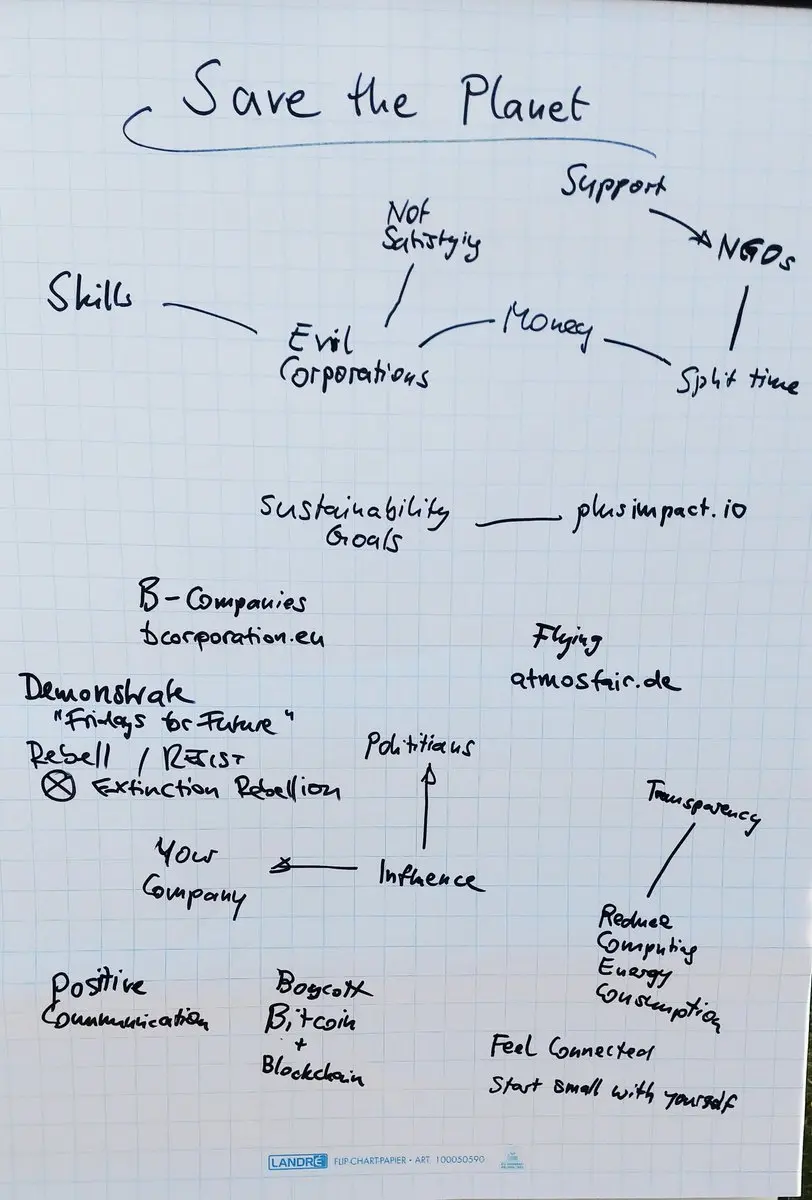 Save the Planet
Support
NGOs
Not
Satisfying
Skills
Evil
Corporations
Money
Split time
Sustainability
Goals
plusimpact.io
B-Companies
bcorporation.eu
Flying
atmosfair.de
Demonstrate
"Fridays for Future"
Rebell / RESIST
Extinction Rebellion
Polititians
Transparency
Your
Company
Influence
Reduce
Computing
Energy
Consumption
Positive
Communication
Boycott
Bitcoin
+
Blockchain
Feel Connected
Start small with yourself
LANDRÉ FLIP-CHART-PAPIER • ART. 100050590